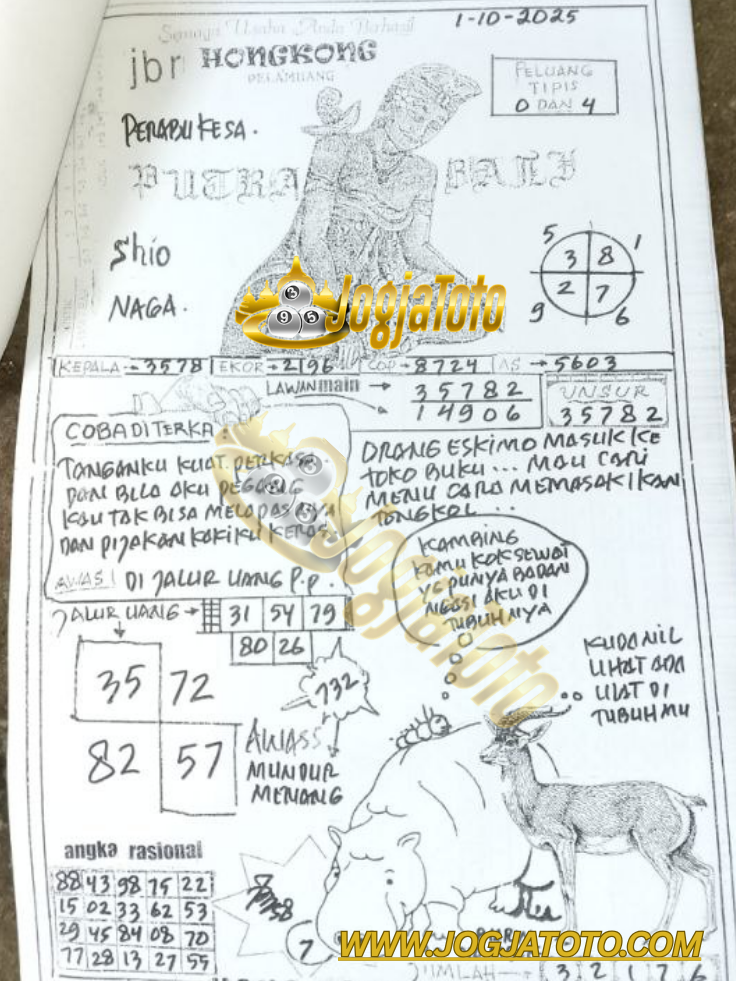 Semoga Usaha Anda Berhasil
1-10-2025
jbr HONGKONG
PELAMUANG
PELUANG
TIPIS
0 DAN 4
PERABU KESA.
PUTRA BALI
Shio
NAGA.
5 1
3 8
2 7
9 6
JogjaToto
KEPALA → 3578 EKOR → 2196 COP → 8724 AS → 5603
LAWAN main → 35782
14906
UNSUR
35782
COBA DITERKA.
TANGANKU KUAT. PERKASA.
DAN BILA AKU PEGANG
KAU TAK BISA
DAN PIJAKAN KAKIKU KERAS.
AWAS! DI JALUR UANG P.P.
ORANG ESKIMO MASUK KE
TOKO BUKU... MAU CARI
MENU CARA MEMASAK IKAN
TONGKOL...
KAMBING
KAMU KOK SEWOT
YG PUNYA BADAN
NGGSI AKU DI
TUBUHNYA
JALUR UANG → 31 54 79
80 26
35 72
82 57
732
AWASS
MUNDUR
MENANG
KUDANIL
LIHAT ADA
ULAT DI
TUBUHMU
JogjaToto
angka rasional
88 43 98 75 22
15 02 33 62 53
29 45 84 08 70
77 28 13 27 55
7
WWW.JOGJATOTO.COM
JUMLAH → 3 2 1 7 6